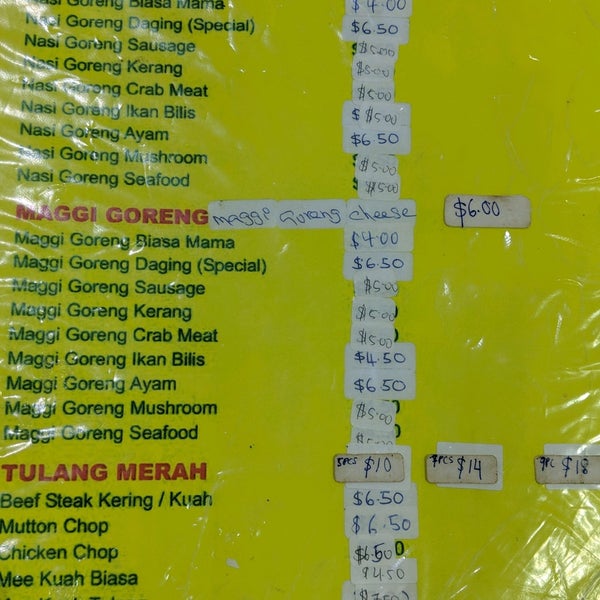 Nasi Goreng Biasa Mama $4.00
Nasi Goreng Daging (Special) $6.50
Nasi Goreng Sausage $5.00
Nasi Goreng Kerang $5.00
Nasi Goreng Crab Meat $5.00
Nasi Goreng Ikan Bilis $5.00
Nasi Goreng Ayam $6.50
Nasi Goreng Mushroom $5.00
Nasi Goreng Seafood $5.00
MAGGI GORENG maggi Goreng cheese $6.00
Maggi Goreng Biasa Mama $4.00
Maggi Goreng Daging (Special) $6.50
Maggi Goreng Sausage $5.00
Maggi Goreng Kerang $5.00
Maggi Goreng Crab Meat $5.00
Maggi Goreng Ikan Bilis $4.50
Maggi Goreng Ayam $6.50
Maggi Goreng Mushroom $5.00
Maggi Goreng Seafood $5.00
TULANG MERAH 5PCS $10 7PCS $14 9PC $18
Beef Steak Kering / Kuah $6.50
Mutton Chop $6.50
Chicken Chop $6.50
Mee Kuah Biasa $4.50